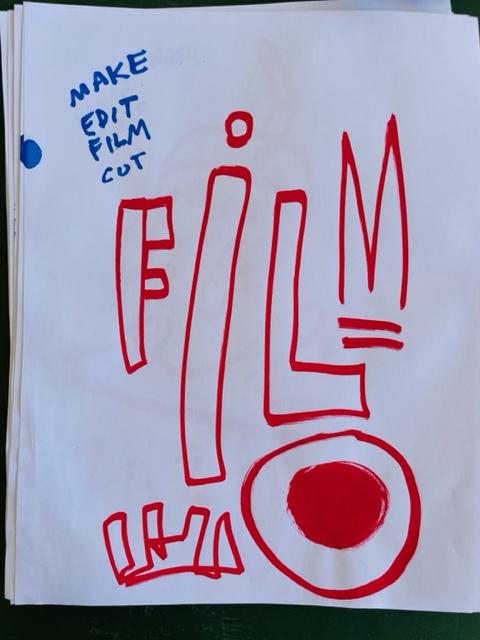 MAKE
EDIT
FILM
CUT
FiLM